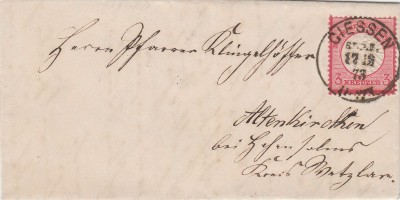 GIESSEN
17 12
73
3 KREUZER 3
Herrn Pfarrer Klingelhöffer
Altenkirchen
bei Hohensolms
Kreis Wetzlar.